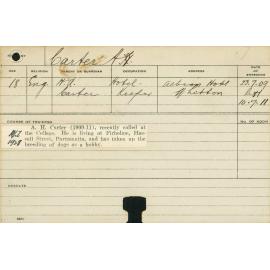 Carter A H
AGE RELIGION PARENT OR GUARDIAN OCCUPATION ADDRESS DATE OF ENTERING
18 Eng. H. A. Hotel- Albury Hotel 22.7.09
Carter Keeper Whitton
10.7.11
COURSE OF TRAINING NO. OF ROOM
A. H. Carter (1909-11), recently called at
the College. He is living at Firholme,
Street, Parramatta, and has taken up the
breeding of dogs as a hobby.
RESULTS